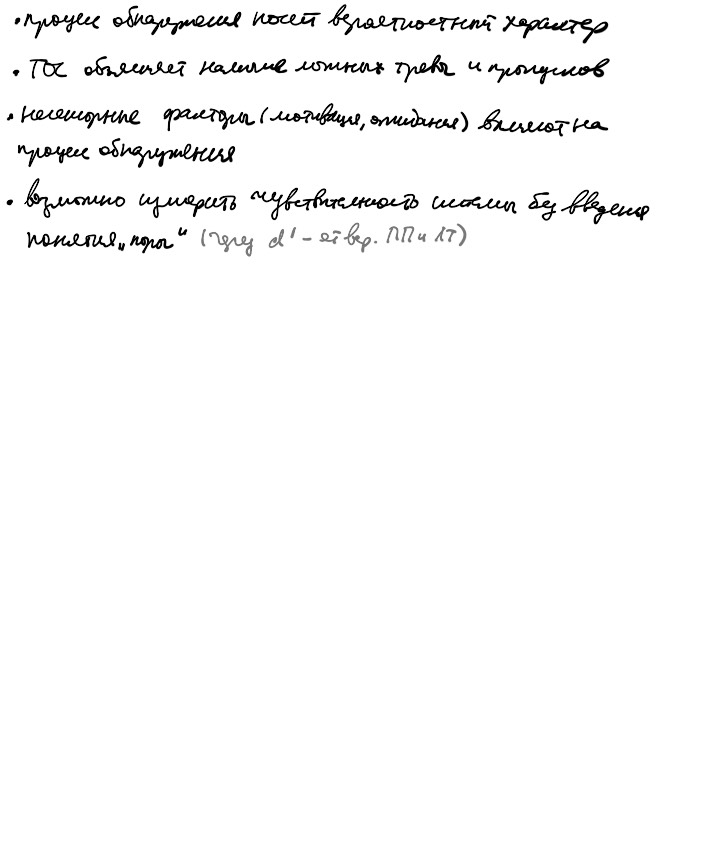 • процесс обнаружения носит вероятностный характер
• ТОС объясняет наличие ложных тревог и пропусков
• несенсорные факторы (мотивация, ожидания) влияют на
процесс обнаружения
• возможно измерить чувствительность системы без введения
понятия „порог“ (через d' – вер. ПП и ЛТ)